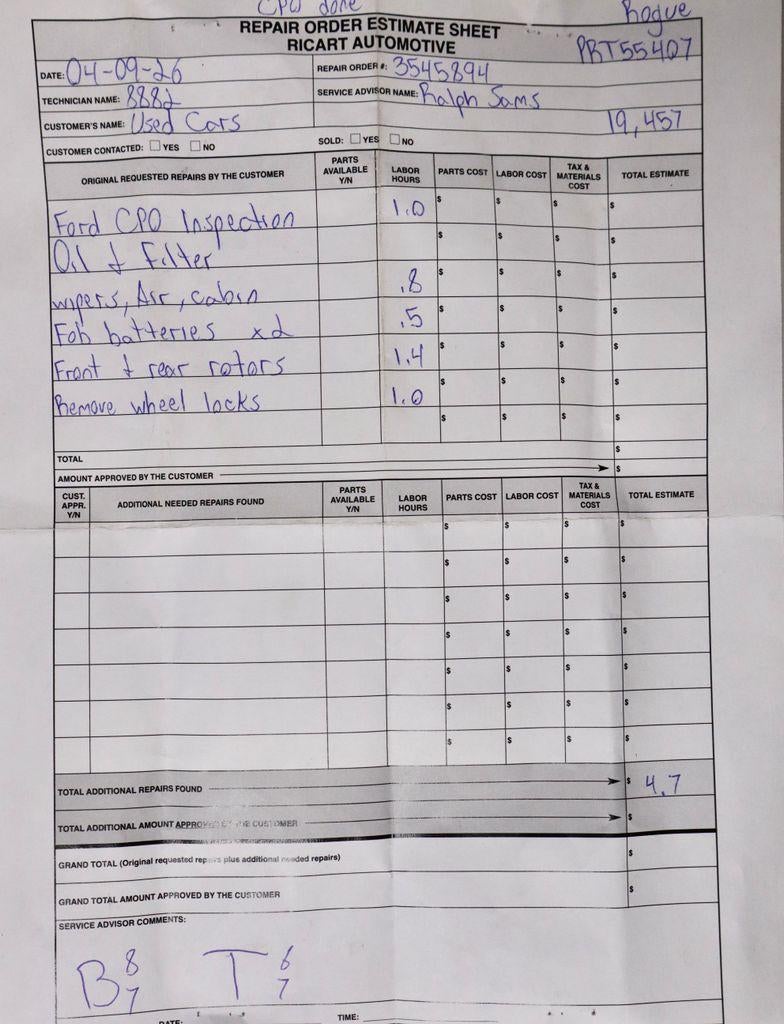 CPO done
Rogue
REPAIR ORDER ESTIMATE SHEET
RICART AUTOMOTIVE
PRT55407
DATE: 04-09-26
REPAIR ORDER #: 3545894
TECHNICIAN NAME: 8882
SERVICE ADVISOR NAME: Ralph Sams
CUSTOMER'S NAME: Used Cars
19,457
CUSTOMER CONTACTED: ☐ YES ☐ NO SOLD: ☐ YES ☐ NO
ORIGINAL REQUESTED REPAIRS BY THE CUSTOMER PARTS AVAILABLE Y/N LABOR HOURS PARTS COST LABOR COST TAX & MATERIALS COST TOTAL ESTIMATE
Ford CPO Inspection 1.0 $ $ $ $
Oil & Filter $ $ $ $
wipers, Air, cabin .8 $ $ $ $
Fob batteries x2 .5 $ $ $ $
Front & rear rotors 1.4 $ $ $ $
Remove wheel locks 1.0 $ $ $ $
$ $ $ $
TOTAL $
AMOUNT APPROVED BY THE CUSTOMER $
CUST. APPR. Y/N ADDITIONAL NEEDED REPAIRS FOUND PARTS AVAILABLE Y/N LABOR HOURS PARTS COST LABOR COST TAX & MATERIALS COST TOTAL ESTIMATE
$ $ $ $
$ $ $ $
$ $ $ $
$ $ $ $
$ $ $ $
$ $ $ $
$ $ $ $
TOTAL ADDITIONAL REPAIRS FOUND $ 4.7
TOTAL ADDITIONAL AMOUNT APPROVED BY THE CUSTOMER $
GRAND TOTAL (Original requested repairs plus additional needed repairs) $
GRAND TOTAL AMOUNT APPROVED BY THE CUSTOMER $
SERVICE ADVISOR COMMENTS:
B 8 7 T 6 7
DATE: TIME: